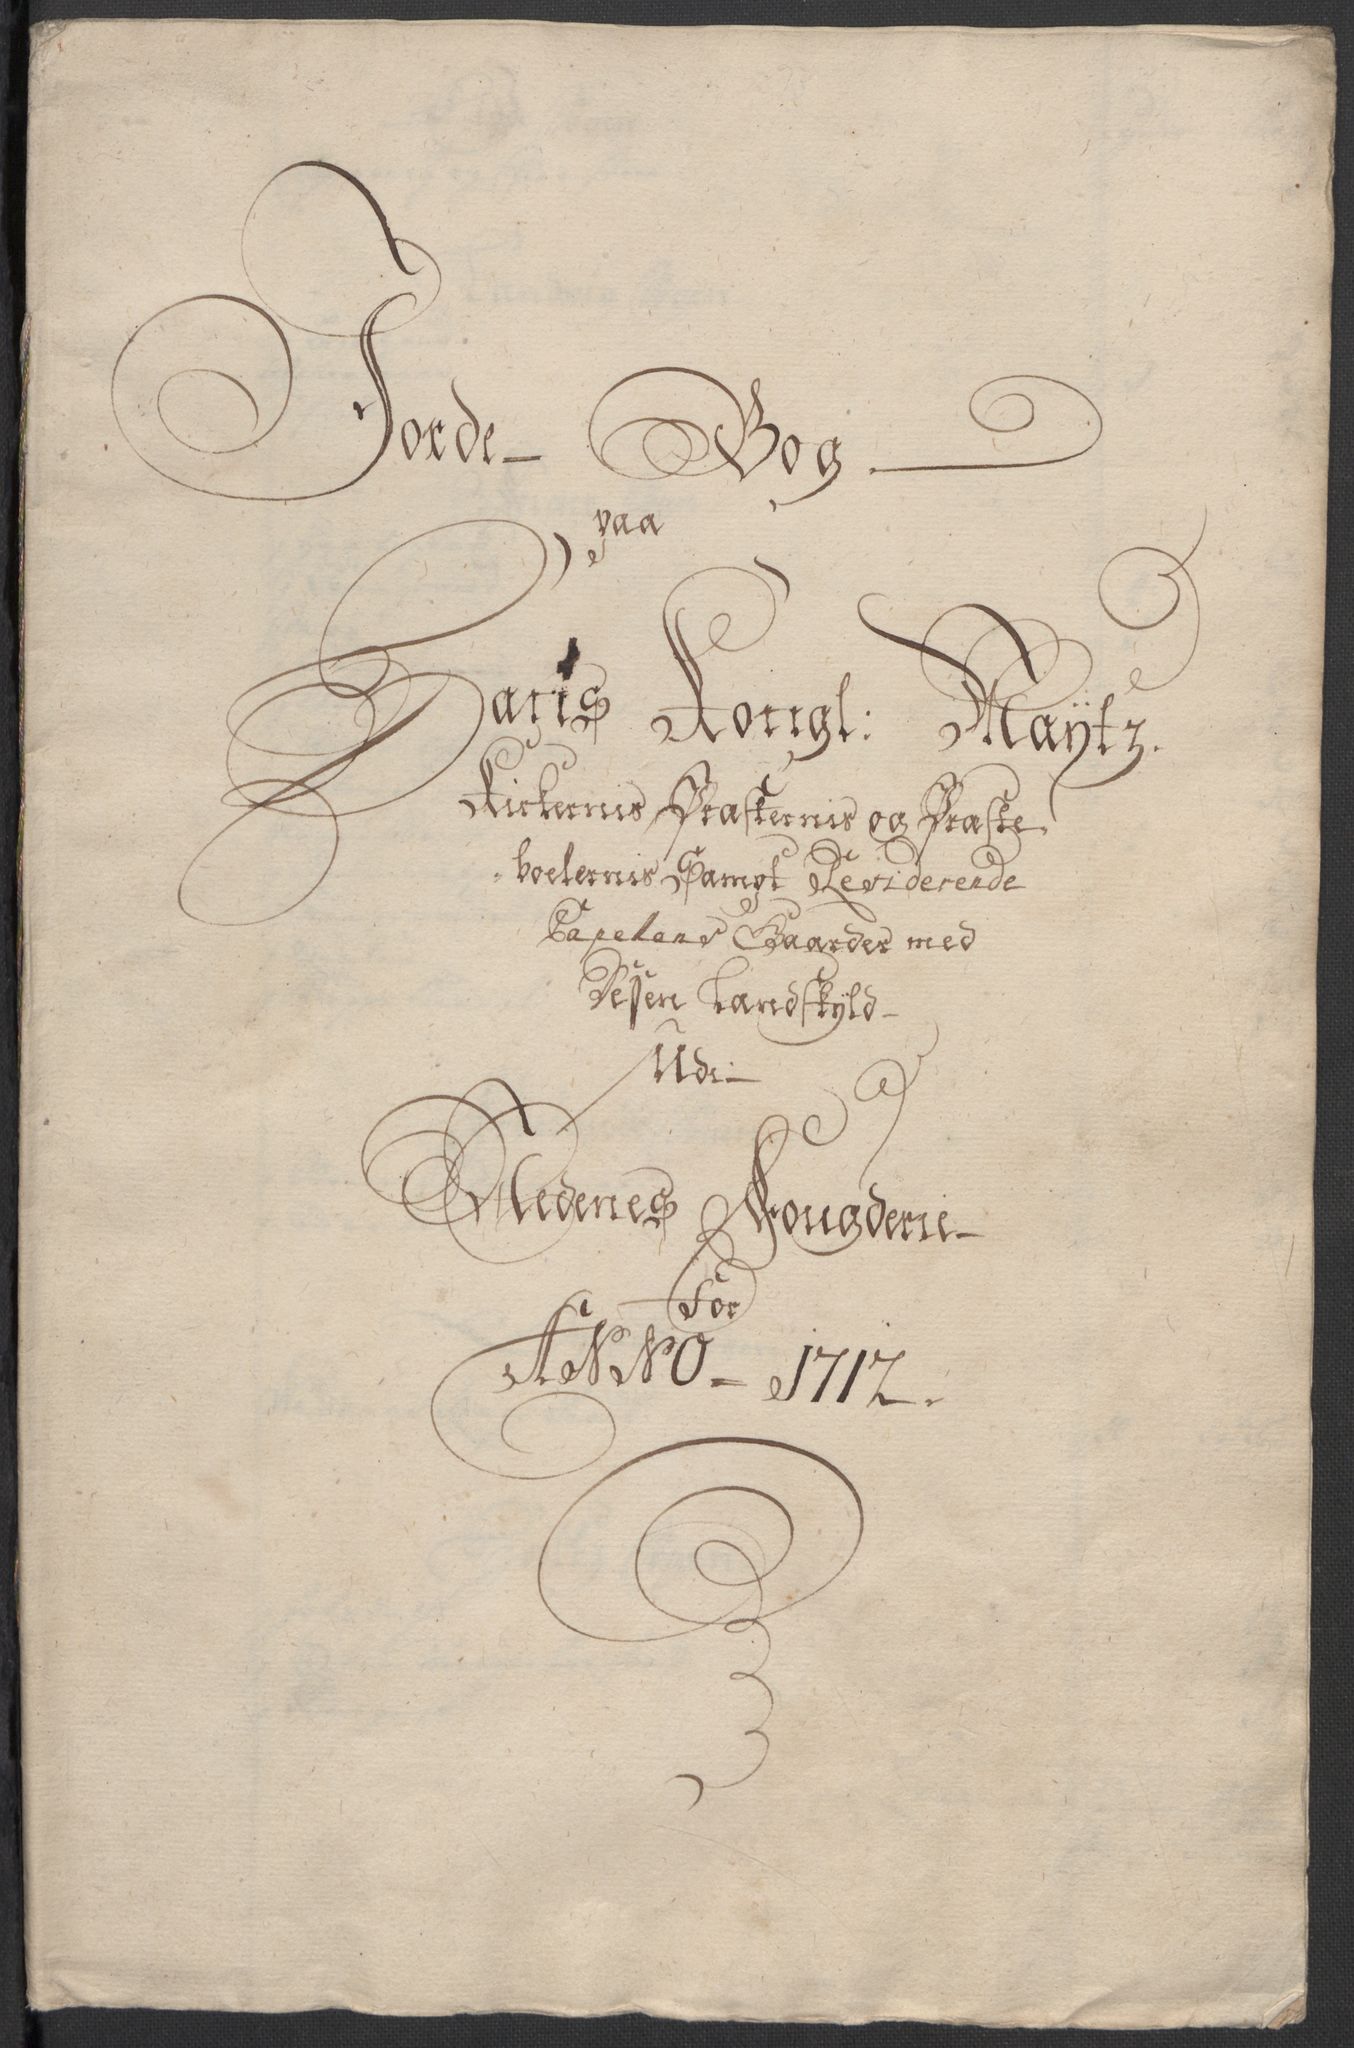 Jorde- Bog
paa
Hans Kongl: Maÿtz.
Kirkernis Præsternis og Præste-
boelernis Sampt Reviderende
Capelans Gaarder med
Desen Landskÿld-
Udi-
Nedenes Fougderie-
For
ANNO - 1712.